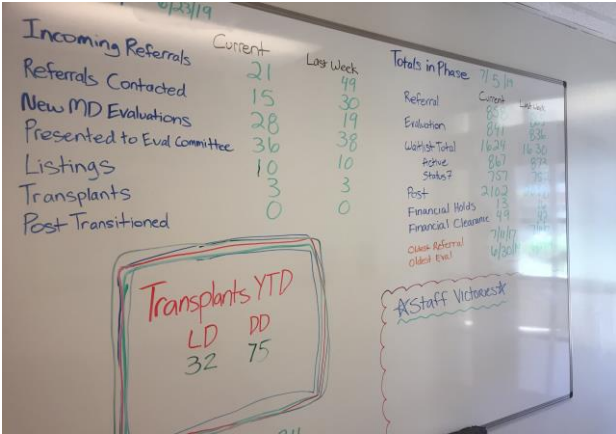 6/23/19
Current Last Week
Incoming Referrals 21 49
Referrals Contacted 15 30
New MD Evaluations 28 19
Presented to Eval Committee 36 38
Listings 10 10
Transplants 3 3
Post Transitioned 0 0
Transplants YTD
LD DD
32 75
Totals in Phase 7/5/19
Current Last Week
Referral
Evaluation 841 836
Waitlist Total 1624 1630
Active 867 873
Status 7 757
Post 2102
Financial Holds 13
Financial Clearance 49
Oldest Referral
Oldest Eval
☆Staff Victories☆